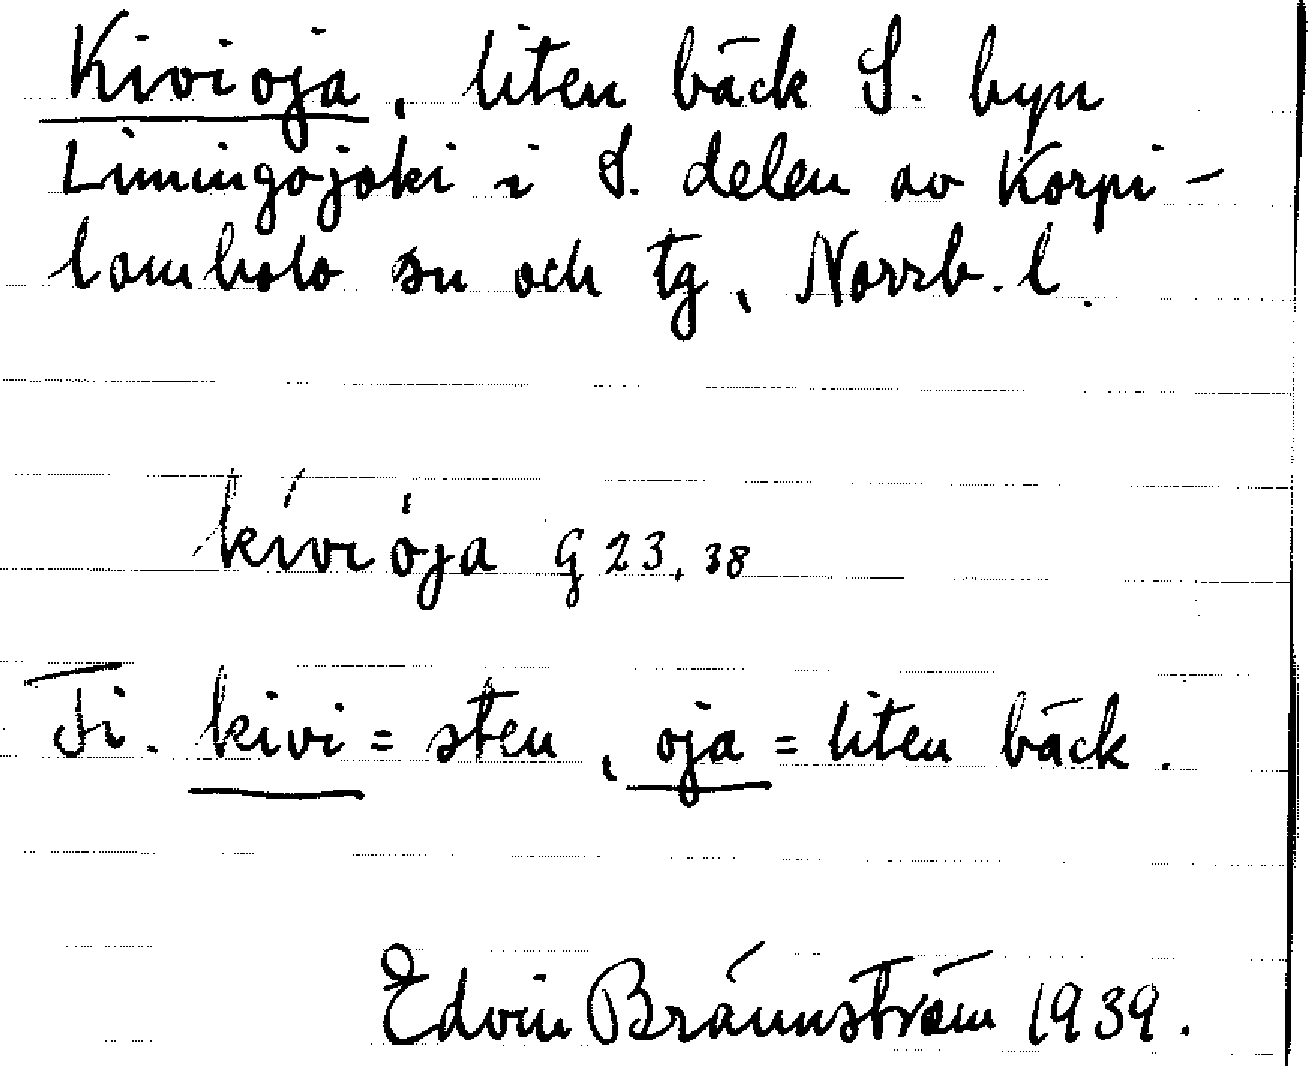 Kivioja, liten bäck S. byn
Limingojoki i S. delen av Korpi-
lombolo sn och tg, Norrb. l.
kívi ója G 23, 38
Fi. kivi = sten, oja = liten bäck.
Edvin Brännström 1939.